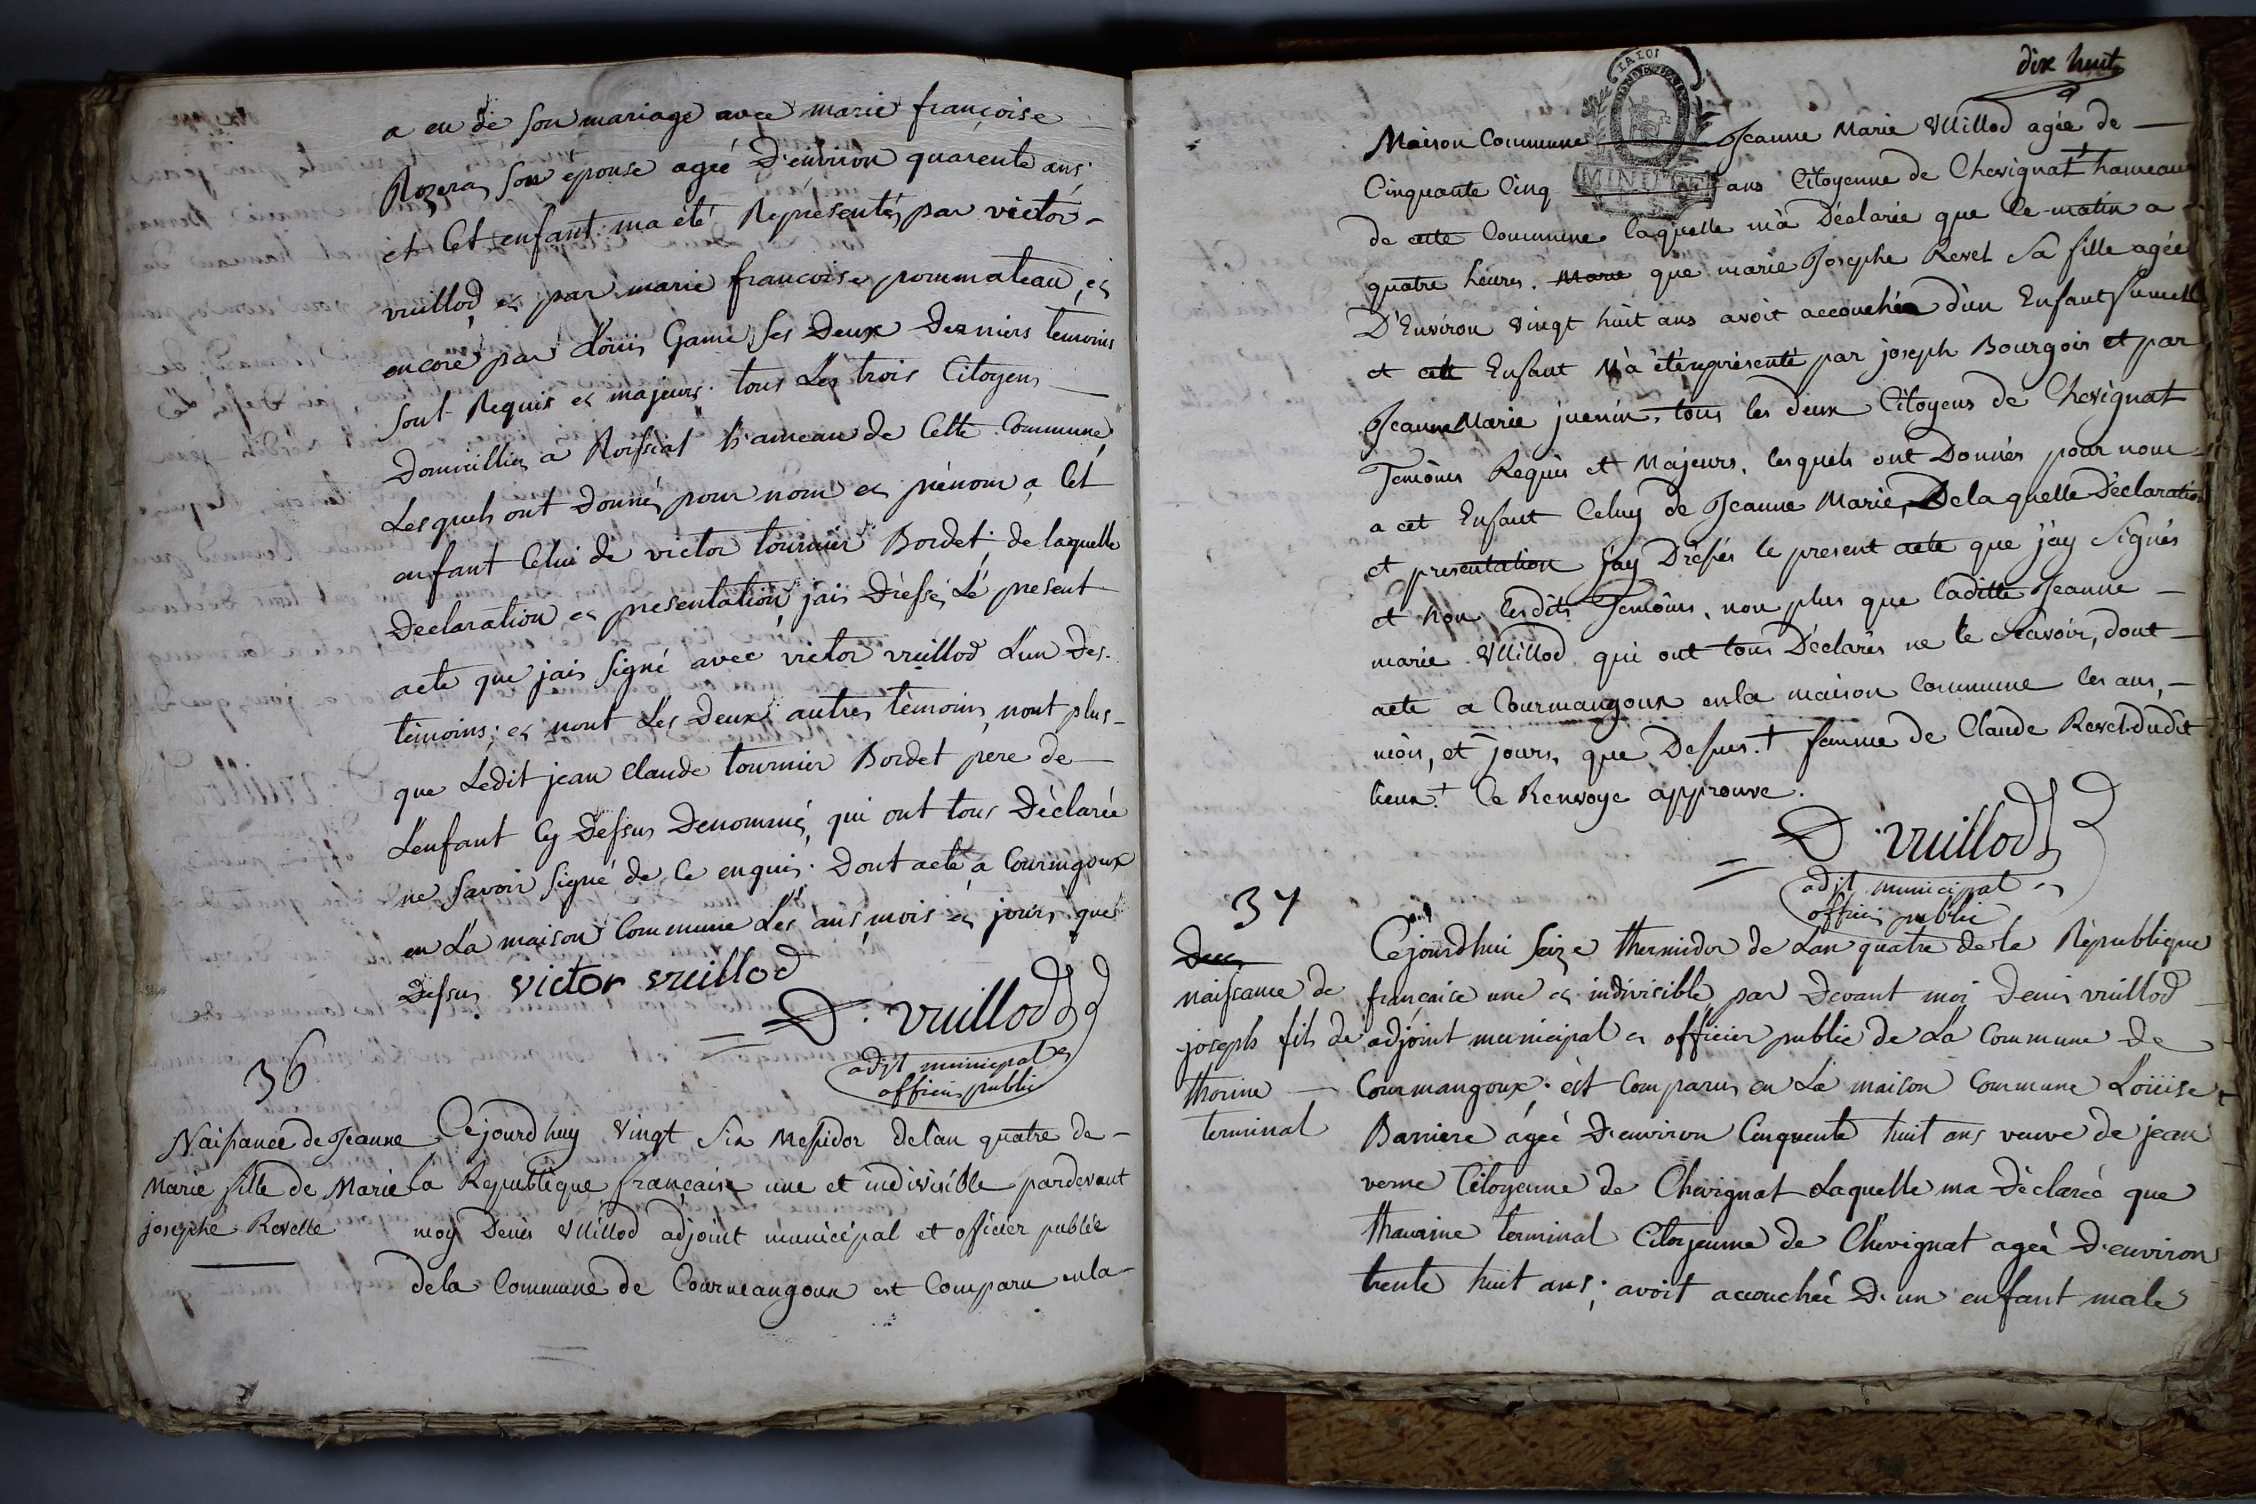 a eu de son mariage avec marie françoise
Rozera son epouse ageé D'environ quarente ans;
et Cet enfant ma été Representés par victor
vuillod et par marie francoise pommateau, et
encore par Louis Game ses Deux Derniers temoins
sont Requis et majeurs. tous Les trois Citoyens
Domicilliés a Roissiat hameau de Cette Commune
Lesquels ont Donné pour nom et prénom a Cet
enfant Celui de victor tournier Bordet; de laquelle
Declaration et presentation jais Dressé Lé present
acte que jais signé avec victor vuillod L'un Des
temoins; et nont Les Deux autres temoins, nont plus
que Ledit jean Claude tournier Bordet père de
L'enfant Cy Dessus Denommé, qui ont tous Déclarée
ne savoir signé de Ce enquis. Dont acte a Courmgoux
en La maison Commune Les ans, mois et jours que
Dessus victor vuillod
D. vuillod
adjt municipal et
officier public
36
Naissance de Jeanne
Marie fille de Marie
josephe Revelle
Cejourdhuy vingt six Messidor delan quatre de
la Republique française une et indivisible pardevant
moy Denis Vuillod adjoint municipal et officier public
dela Commune de Courmangoux est Comparu enla
dix huit
LA LOI
MINUTE
Maison Commune Jeanne Marie Vuillod agée de
Cinquante Cinq ans Citoyenne de Chevignat † hameau
de cette Commune laquelle m'à Déclarée que Ce matin a
quatre heures. Marie que marie Josephe Revel Sa fille agée
D'Environ vingt huit ans avoit accouchée d'un Enfant fumelle
et cett Enfant M'à été représenté par joseph Bourgois et par
Jeanne Marie juenin, tous les deux Citoyens de Chevignat
Temoins Requis et Majeurs, lesquels ont Donnés pour nom
a cet Enfant Celuy de Jeanne Marie, De laquelle Déclaration
et presentation j'ay Dressés le present acte que j'ay Signés
et Non lesdits Temoins, non plus que laditte Jeanne
marie Vuillod qui ont tous Déclarés ne le Scavoir, dont
acte a Courmangoux enla maison Commune les ans,
mois, et jours, que Dessus. † femme de Claude Revel dudit
lieux † Ce Renvoye approuve.
D. vuillod
adjt municipal et
officier public
37
naissance de
joseph fils de
thorine
terminal
Cejourdhui seize thermidor de Lan quatre de la République
française une et indivisible par Devant moi Denis vuillod
adjoint municipal et officier public de La Commune de
Courmangoux; èst Comparus en La maison Commune Louise
Barriere ageé D'environ Cinquente huit ans veuve de jean
verne Citoyenne de Chevignat Laquelle ma Déclareé que
thauvine terminal Citoyenne de Chevignat ageé D'environ
trente huit ans; avoit accouchée D'un enfant male